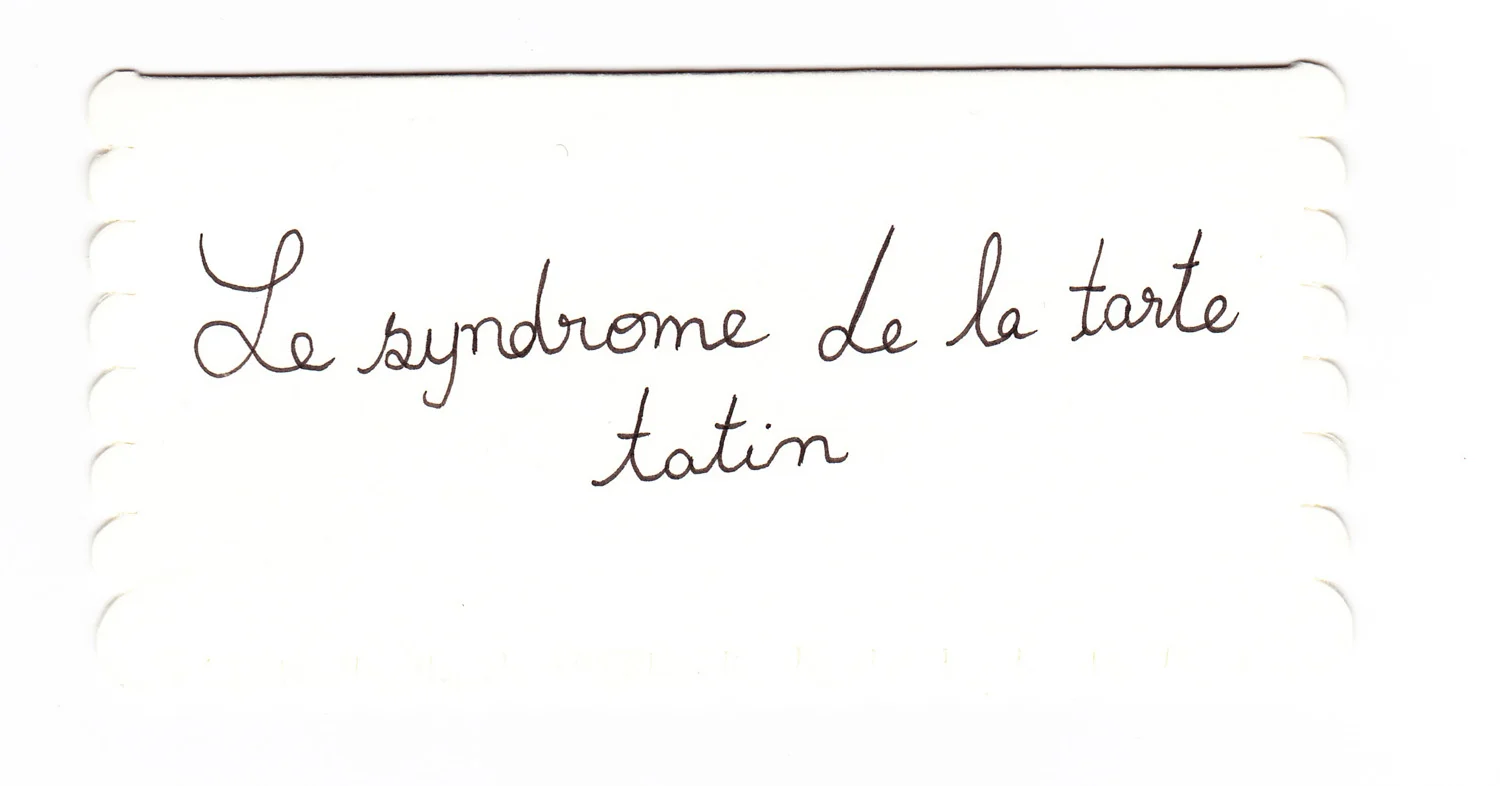 Le syndrome de la tarte
tatin